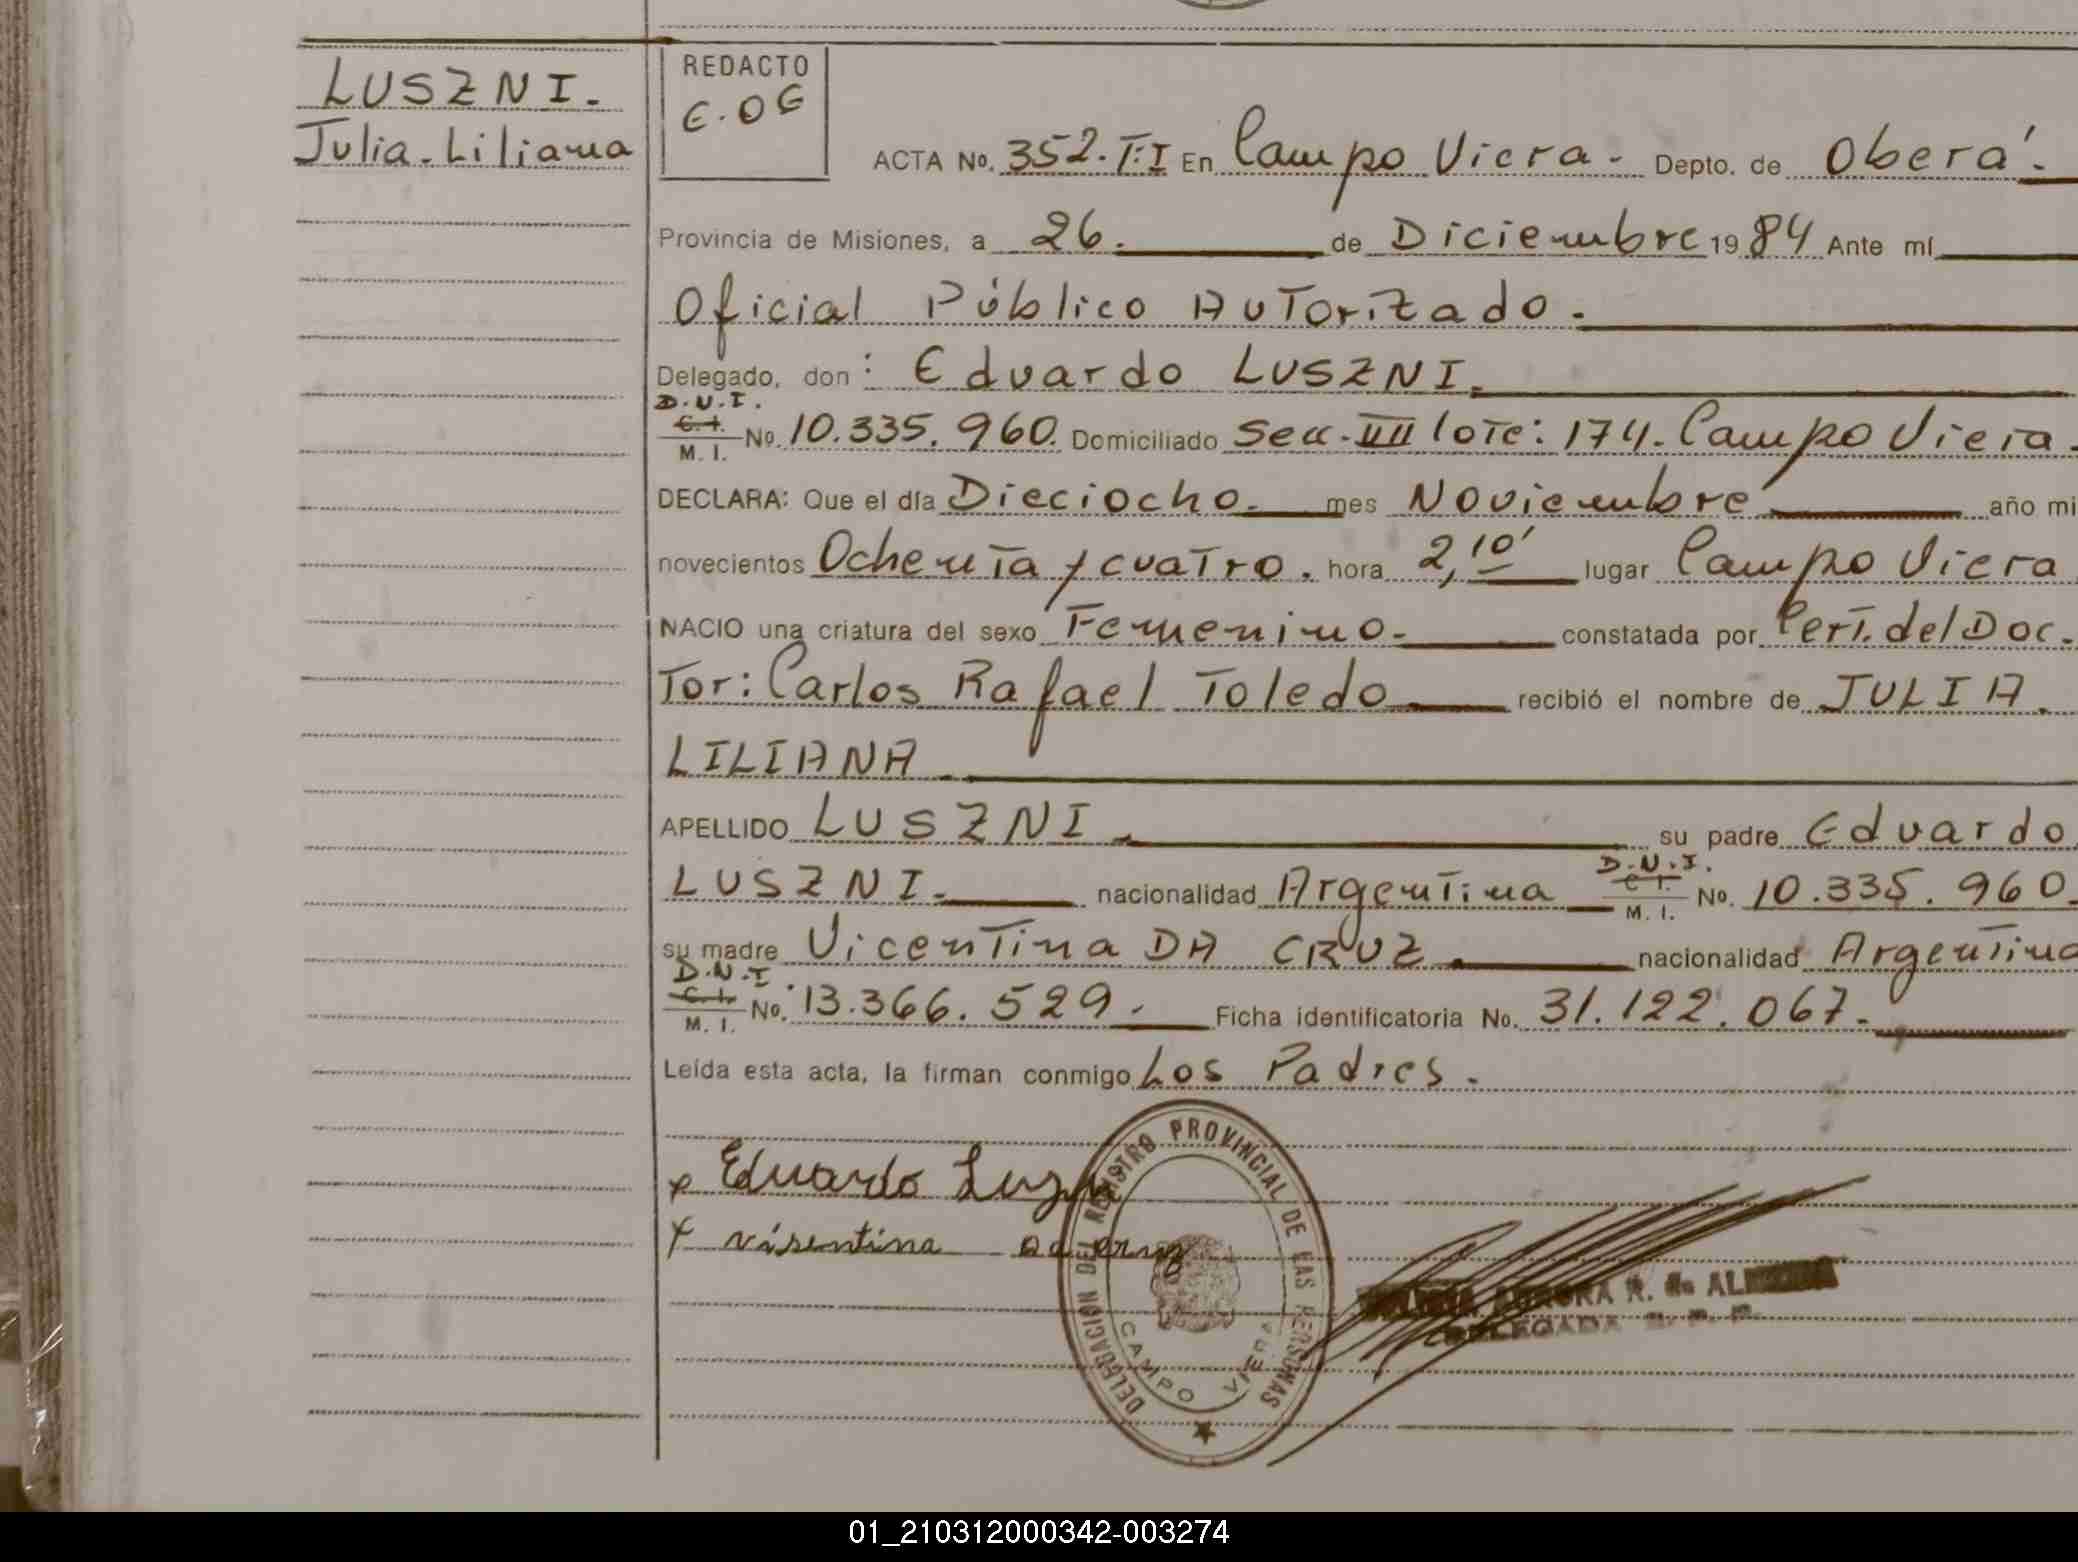 LUSZNI.
Julia. Liliana
REDACTO
E.OE
ACTA No. 352. T:I En Campo Viera. Depto. de Oberá.
Provincia de Misiones, a 26. de Diciembre 1984 Ante mí
Oficial Público Autorizado.
Delegado, don: Eduardo LUSZNI.
D.N.I.
C.I. No. 10.335.960. Domiciliado Secc. VIII lote: 174. Campo Viera.
M. I.
DECLARA: Que el día Dieciocho. mes Noviembre año mi
novecientos Ochenta y cuatro. hora 2,10' lugar Campo Viera
NACIO una criatura del sexo Femenino. constatada por Cert. del Doc.
Tor: Carlos Rafael Toledo recibió el nombre de JULIA.
LILIANA
APELLIDO LUSZNI su padre Eduardo
D.N.I.
LUSZNI. nacionalidad Argentina C I. No. 10.335.960.
M. I.
su madre Vicentina DA CRUZ. nacionalidad Argentina
D.N.I.
C.I. No. 13.366.529. Ficha identificatoria No. 31.122.067.
M. I.
Leída esta acta, la firman conmigo Los Padres.
x Eduardo
x visentina da cruz
DELEGACION DEL REGISTRO PROVINCIAL DE LAS PERSONAS
CAMPO VIERA
AURORA R. de
DELEGADA R. P. P.
01_210312000342-003274